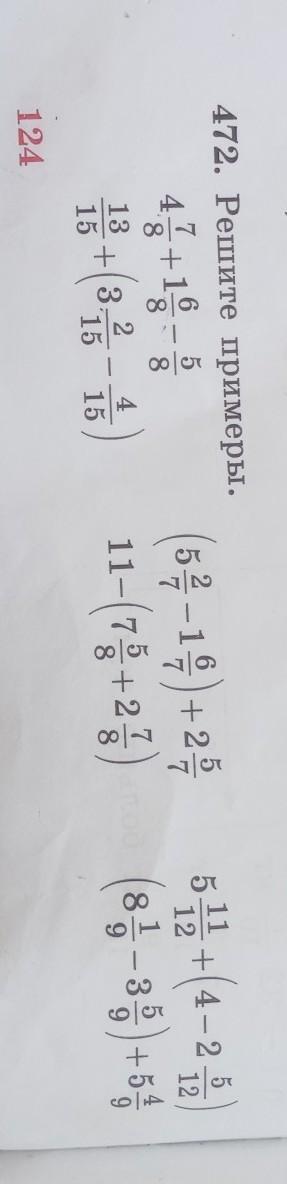 472. Решите примеры.
4 7/8 + 1 6/8 − 5/8    (5 2/7 − 1 6/7) + 2 5/7    5 11/12 + (4 − 2 5/12)
13/15 + (3 2/15 − 4/15)    11 − (7 5/8 + 2 7/8)    (8 1/9 − 3 5/9) + 5 4/9
124